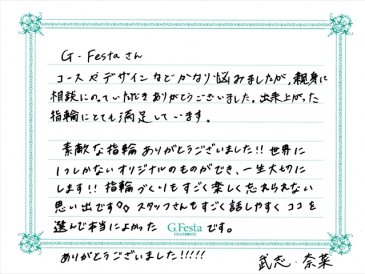 G・Festaさん
コースやデザインなどかなり悩みましたが、親身に
相談にのっていただきありがとうございました。出来上がった
指輪にとても満足しています。
素敵な指輪ありがとうございました!!世界に
1つしかないオリジナルのものができ、一生大切に
します!!指輪づくりもすごく楽しく忘れられない
思い出です。スタッフさんもすごく話しやすくココを
選んで本当によかったです。
G.Festa
ありがとうございました!!!!!
武志・奈菜